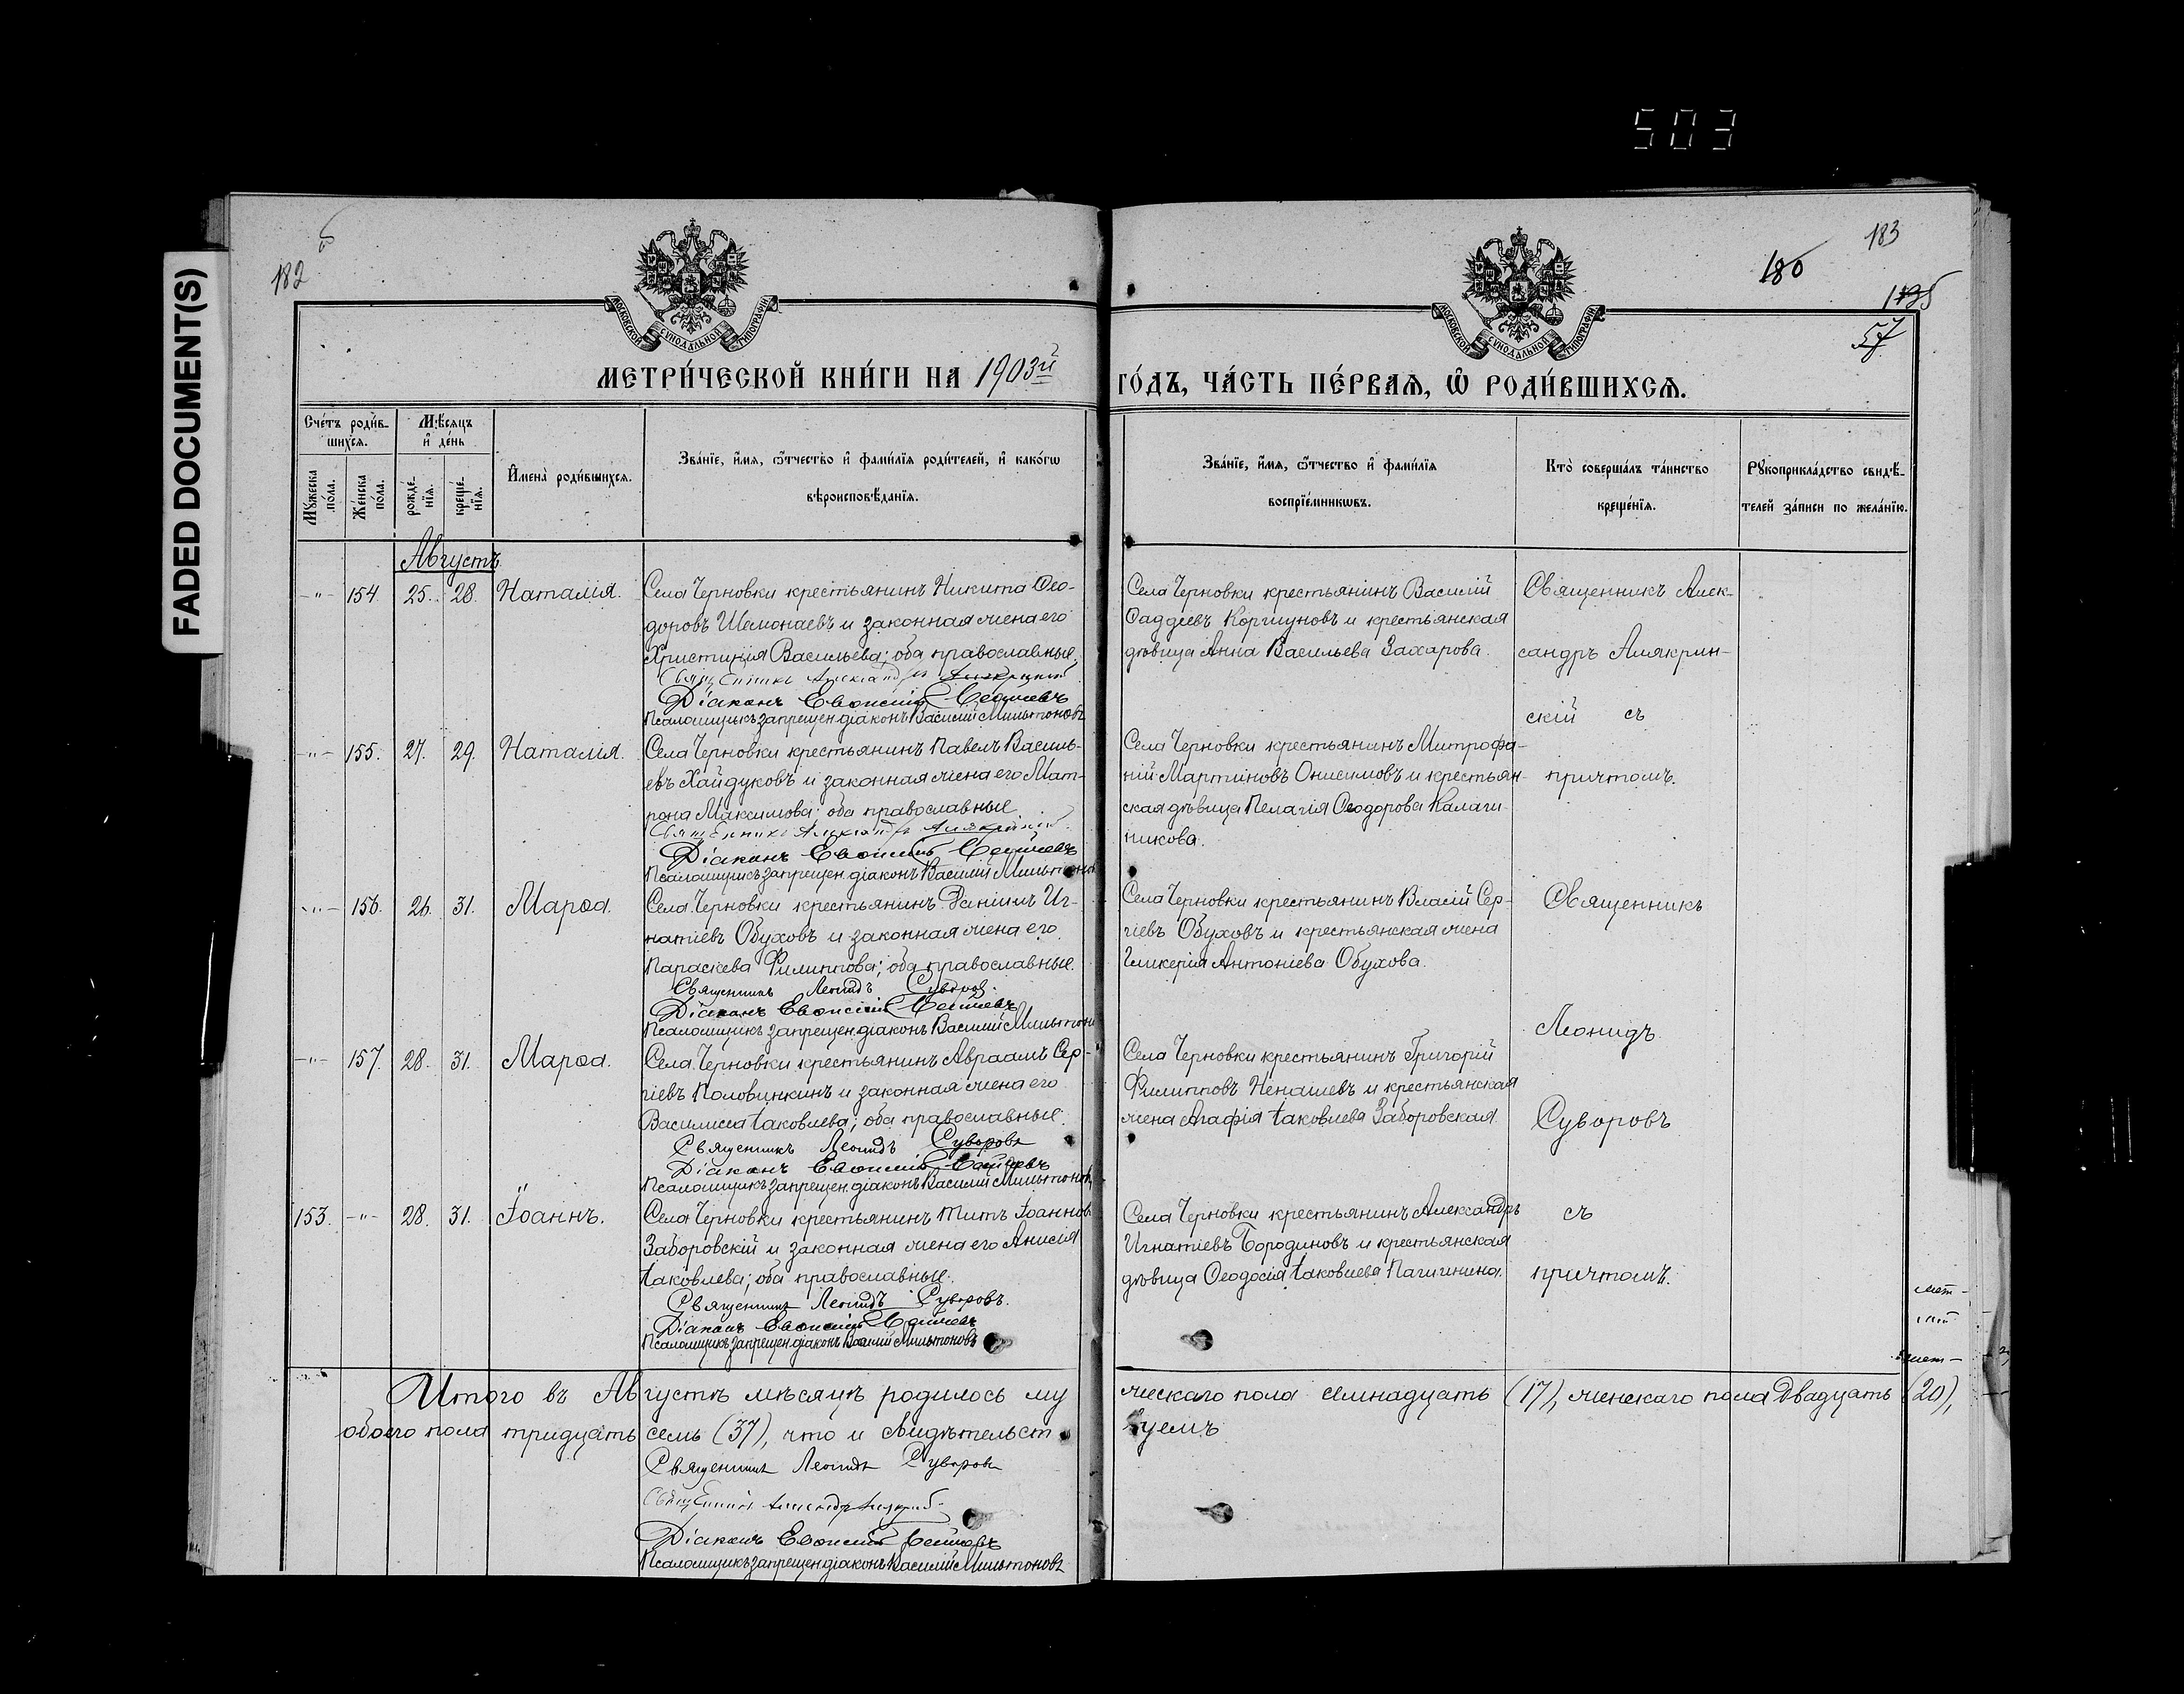 503
FADED DOCUMENT(S)
182
183
180
57
МОСКОВСКОЙ СѴНОДАЛЬНОЙ ТИПОГРАФІИ
МОСКОВСКОЙ СѴНОДАЛЬНОЙ ТИПОГРАФІИ
МЕТРИ́ЧЕСКОЙ КНИ́ГИ НА 1903й
ГО́ДЪ, ЧА́СТЬ ПЕ́РВАѦ, Ѡ҆ РОДИ́ВШИХСѦ.
Сче́тъ роди́в-
шихсѧ.
Мꙋ́жеска по́ла.
Же́нска по́ла.
Мѣ́сѧцъ и҆ де́нь
рожде́-
нїѧ.
креще́-
нїѧ.
И҆мена̀ роди́вшихсѧ.
Зва́нїе, и҆́мѧ, ѻ҆́тчество и҆ фами́лїѧ роди́телей, и҆ како́гѡ
вѣроисповѣ́данїѧ.
Зва́нїе, и҆́мѧ, ѻ҆́тчество и҆ фами́лїѧ
воспрїе́мникѡвъ.
Кто̀ соверша́лъ та́инство
креще́нїѧ.
Рꙋкоприкла́дство свидѣ́-
телей за́писи по жела́нїю.
Августъ
-"- 154. 25. 28. Наталія.
Села Черновки крестьянинъ Никита Ѳео-
доровъ Шемонаевъ и законная жена его
Христинія Васильева; оба православные.
Священникъ Александръ Алякринскій
Діаконъ Евѳимій
Псаломщикъ запрещен. діаконъ Василій Мильтоновъ
Села Черновки крестьянинъ Василій
Ѳаддеевъ Коршуновъ и крестьянская
дѣвица Анна Васильева Захарова.
Священникъ Алек-
сандръ Алякрин-
скій съ
причтомъ.
-"- 155. 27. 29. Наталія.
Села Черновки крестьянинъ Павелъ Василь-
евъ Хайдуковъ и законная жена его Мат-
рона Максимова; оба православные
Священникъ Александръ Алякринскій
Діаконъ Евѳимій
Псаломщикъ запрещен. діаконъ Василій Мильтонов
Села Черновки крестьянинъ Митрофа-
ній Мартиновъ Онисимовъ и крестьян-
ская дѣвица Пелагія Ѳеодорова Калаги-
никова.
-"- 156. 26. 31. Марѳа.
Села Черновки крестьянинъ Даніилъ Иг-
натіевъ Обуховъ и законная жена его
Параскева Филиппова; оба православные.
Священникъ Леонидъ Суворов.
Діаконъ Евѳимій
Псаломщикъ запрещен. діаконъ Василій Мильтонов
Села Черновки крестьянинъ Власій Сер-
гіевъ Обуховъ и крестьянская жена
Гликерія Антоніева Обухова.
Священникъ
Леонидъ
Суворовъ
съ
причтомъ.
-"- 157. 28. 31. Марѳа.
Села Черновки крестьянинъ Авраамъ Сер-
гіевъ Половинкинъ и законная жена его
Василисса Іаковлева; оба православные.
Священникъ Леонидъ Суворовъ
Діаконъ Евѳимій
Псаломщикъ запрещен. діаконъ Василій Мильтоновъ
Села Черновки крестьянинъ Григорій
Филипповъ Ненашевъ и крестьянская
жена Агафія Іаковлева Заборовская
153. -"- 28. 31. Іоаннъ.
Села Черновки крестьянинъ Титъ Іоаннов
Заборовскій и законная жена его Анисія
Іаковлева; оба православные.
Священникъ Леонидъ Суворовъ.
Діаконъ Евѳимій
Псаломщикъ запрещен. діаконъ Василій Мильтоновъ
Села Черновки крестьянинъ Александръ
Игнатіевъ Бородиновъ и крестьянская
дѣвица Ѳеодосія Іаковлева Пачинина.
Итого въ Августѣ мѣсяцѣ родилось му жескаго пола семнадцать (17), женскаго пола двадцать (20),
обоего пола тридцать семь (37), что и свидѣтельст вуемъ
Священникъ Леонидъ Суворовъ
Священникъ Александръ
Діаконъ Евѳимій
Псаломщикъ запрещен. діаконъ Василій Мильтоновъ